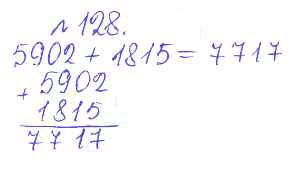 № 128.
5902 + 1815 = 7717
+ 5902
1815
7717